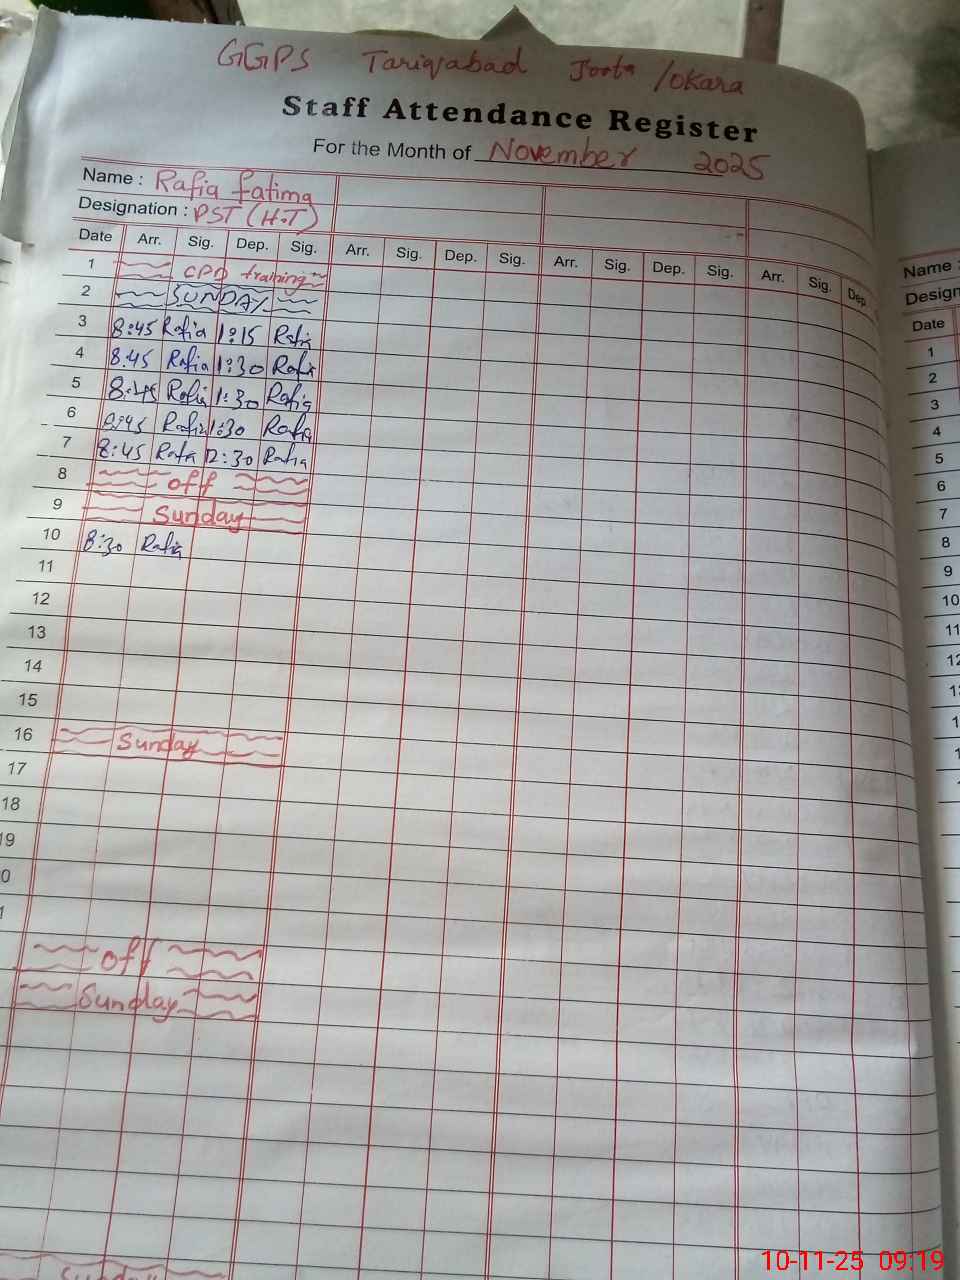 GGPS Tariqabad Joota /Okara
Staff Attendance Register
For the Month of November 2025
Name : Rafia fatima
Designation : PST (H.T)
Date Arr. Sig. Dep. Sig. Arr. Sig. Dep. Sig. Arr. Sig. Dep. Sig. Arr. Sig. Dep.
1 CPD training
2 SUNDAY
3 8:45 Rafia 1:15 Rafia
4 8:45 Rafia 1:30 Rafia
5 8:45 Rafia 1:30 Rafia
6 8:45 Rafia 1:30 Rafia
7 8:45 Rafia 12:30 Rafia
8 off
9 Sunday
10 8:30 Rafia
11
12
13
14
15
16 Sunday
17
18
19
0
1
off
Sunday
Sunday
Name :
Design
Date
1
2
3
4
5
6
7
8
9
10
11
12
10-11-25 09:19